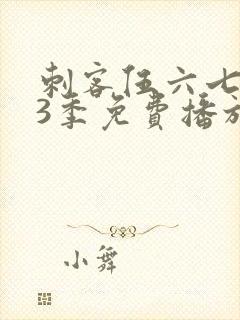 刺客伍六七
3季免費播放
小舞